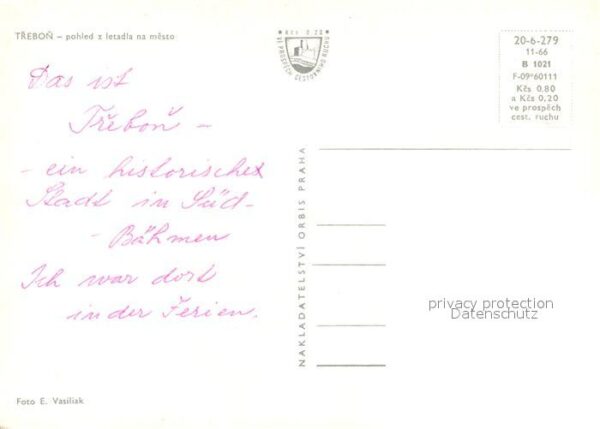 TŘEBOŇ – pohled z letadla na město
Kčs 0.20
VE PROSPĚCH CESTOVNÍHO RUCHU
20-6-279
11-66
B 1021
F-09*60111
Kčs 0,80
a Kčs 0,20
ve prospěch
cest. ruchu
Das ist
Třeboň –
– ein historisches
Stadt in Süd-
- Böhmen
Ich war dort
in der Ferien.
NAKLADATELSTVÍ ORBIS PRAHA
privacy protection
Datenschutz
Foto E. Vasiliak